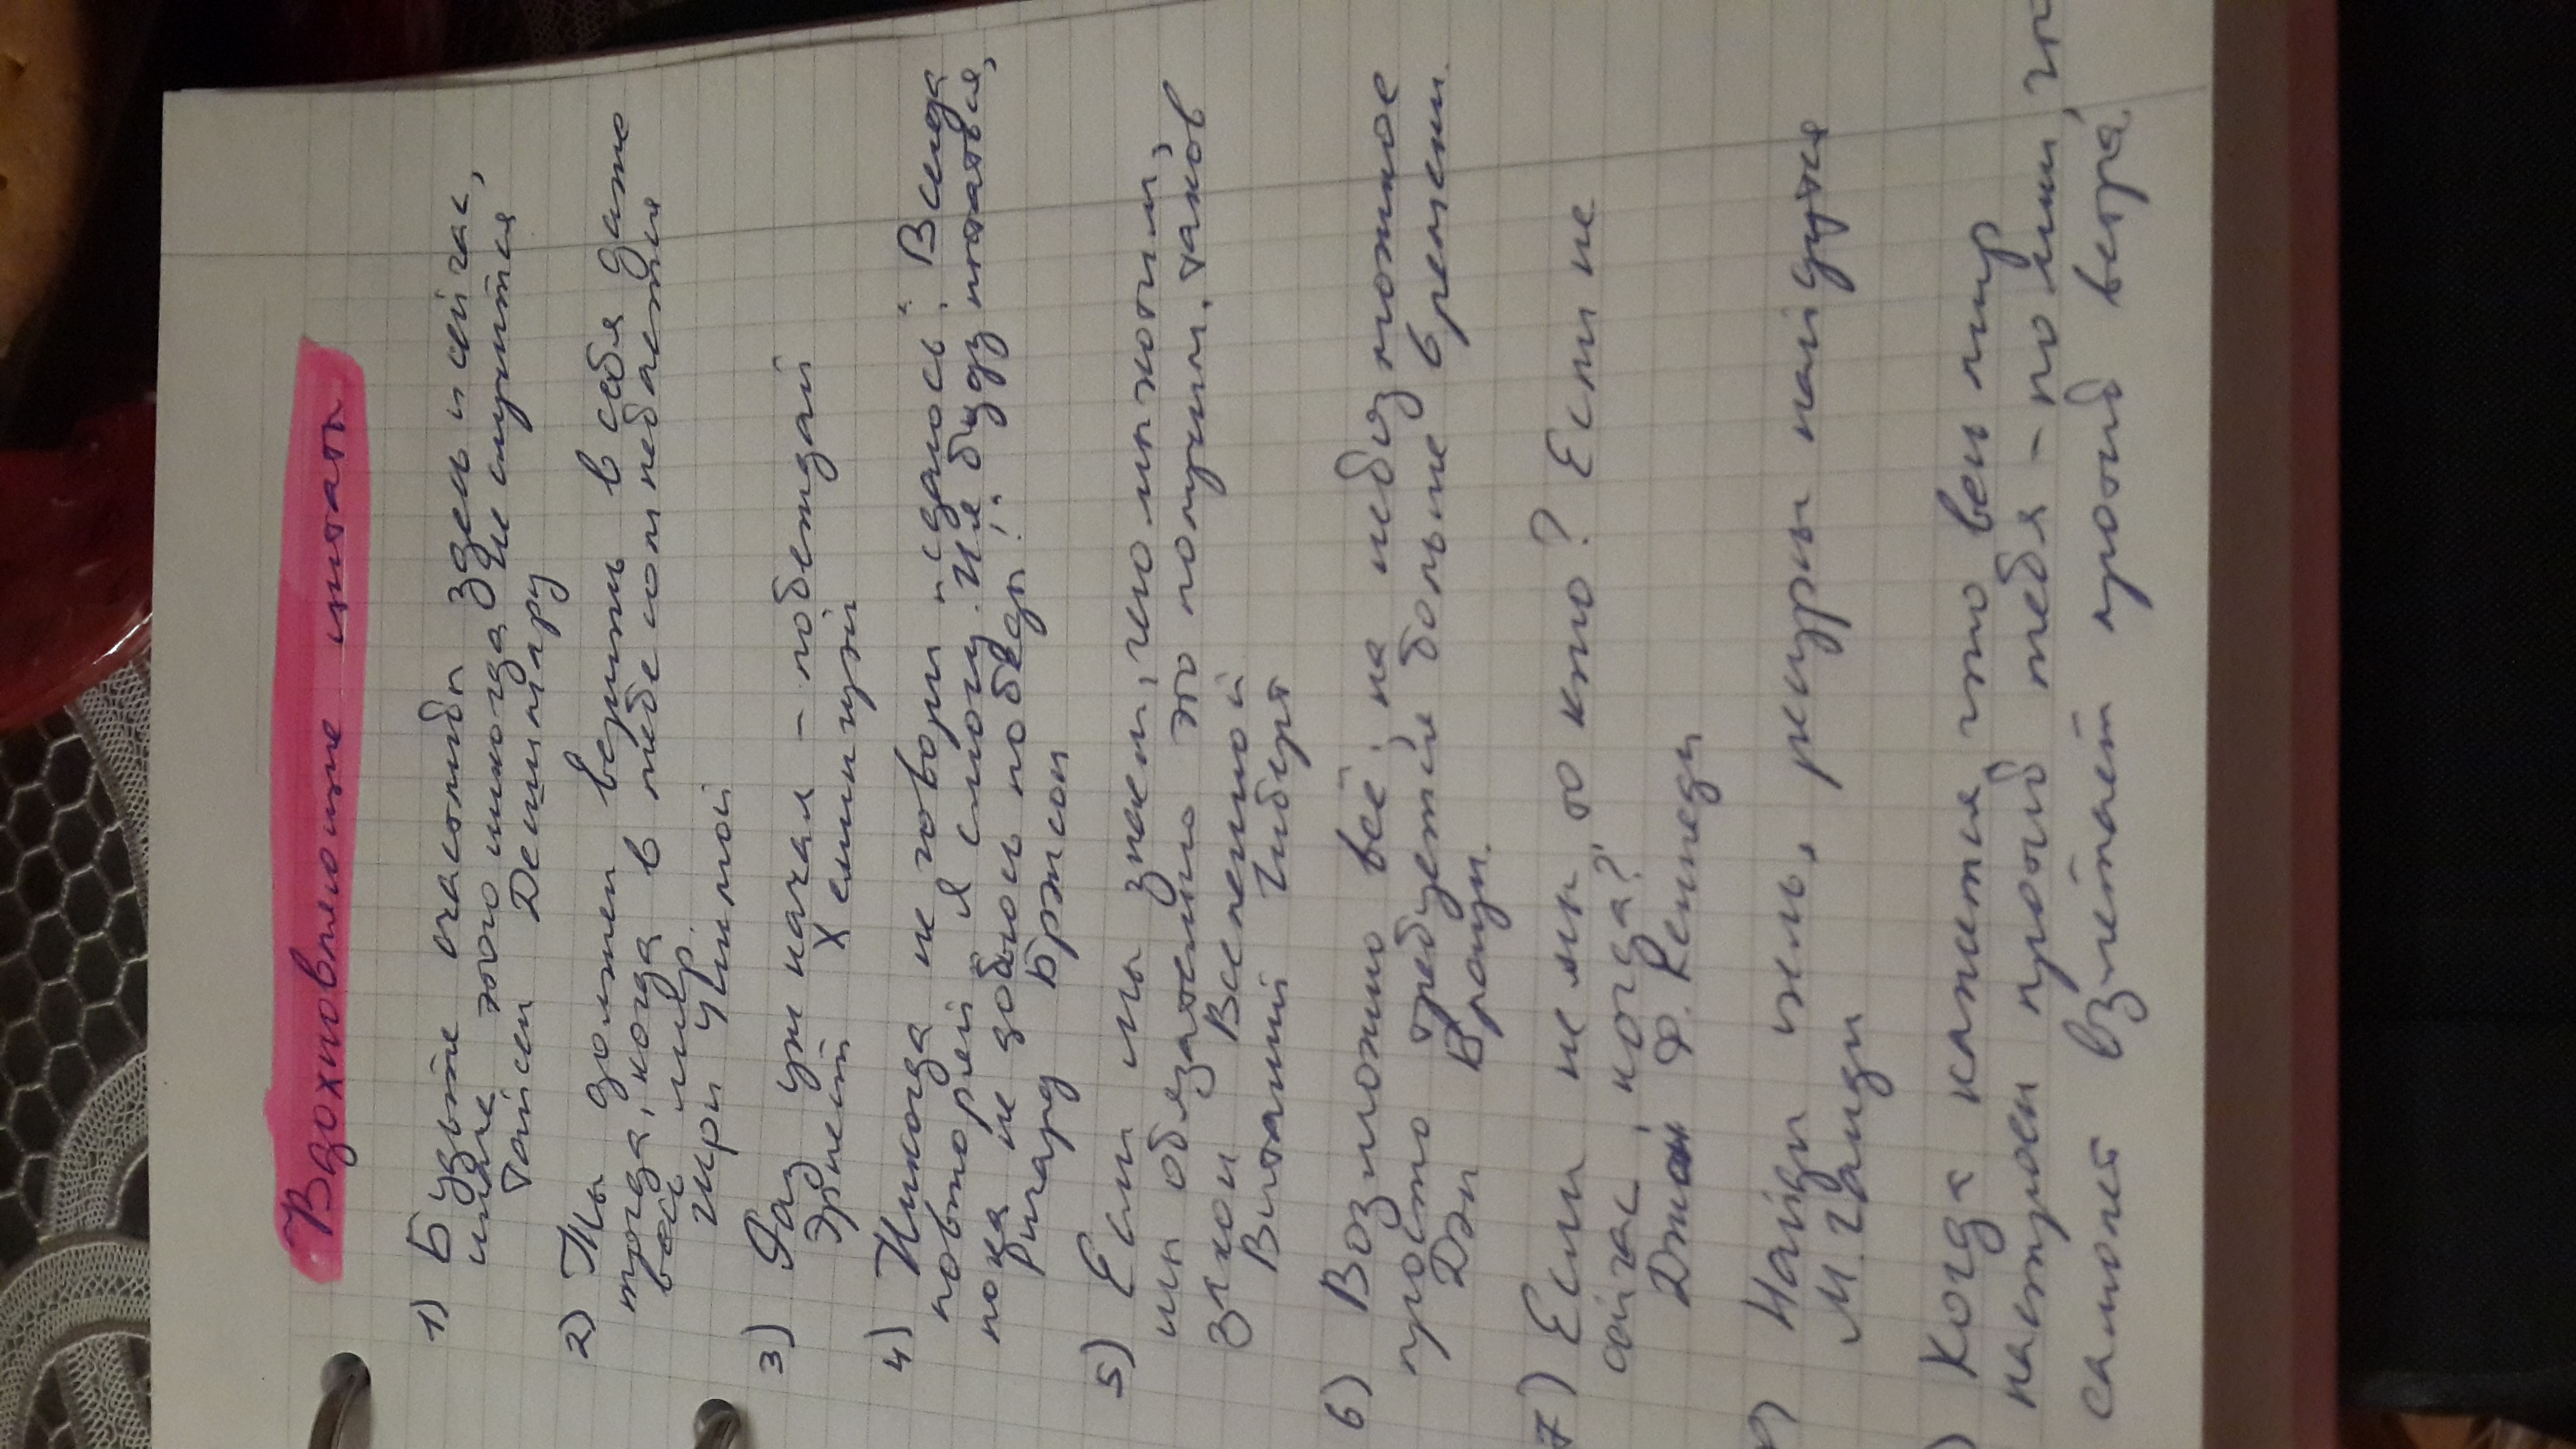 Вдохновляющие цитаты
1) Будьте счастливы здесь и сейчас,
иначе этого никогда не случится
Тайсен Дешимару
2) Ты должен верить в себя даже
тогда, когда в тебе сомневается
весь мир.
Гири Чинмой
3) Раз уж начал - побеждай
Эрнест Хемингуэй
4) Никогда не говори "сдаюсь". Всегда
повторяй "Я смогу. И я буду пытаться,
пока не добьюсь победы!"
Ричард Брэнсон
5) Если мы знаем, чего мы хотим,
мы обязательно это получим. таков
Закон Вселенной
Виталий Гиберт
6) Возможно всё, на невозможное
просто требуется больше времени.
Дэн Браун.
7) Если не мы, то кто? Если не
сейчас, когда?
Джон Ф. Кеннеди
Найди цель, ресурсы найдутся
М. Ганди
Когда кажется, что весь мир
настроен против тебя - помни, что
самолет взлетает против ветра.